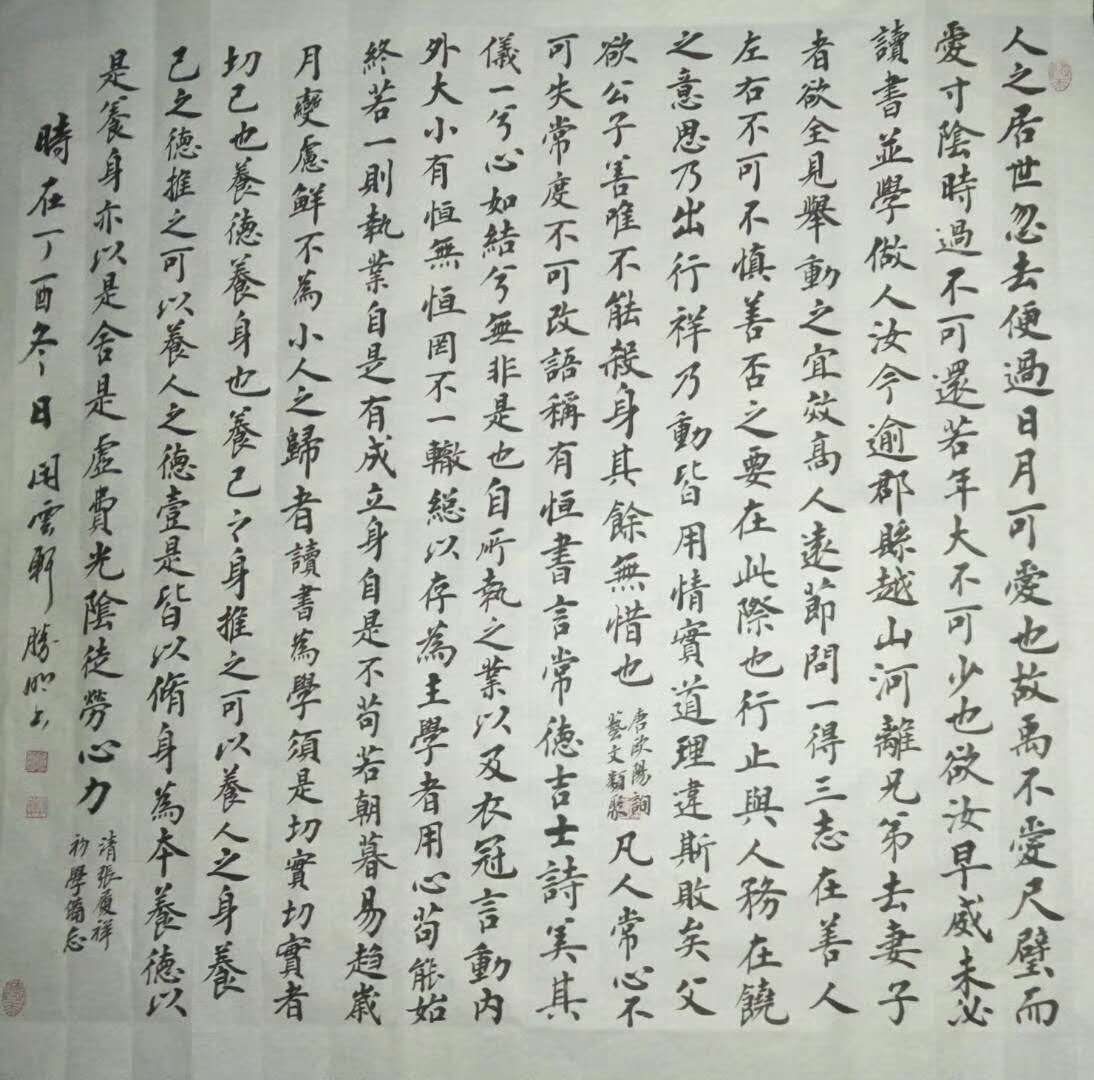 人之居世忽去便過日月可愛也故禹不愛尺璧而
愛寸陰時過不可還若年大不可少也欲汝早威未必
讀書並學做人汝今逾郡縣越山河離兄弟去妻子
者欲全見舉動之宜效高人遠莭問一得三志在善人
左右不可不慎善否之要在此際也行止與人務在饒
之意思乃出行祥乃動皆用情實道理違斯敗矣父
欲公子善唯不能殺身其餘無惜也
唐欧陽詢
藝文類聚
凡人常心不
可失常度不可改語稱有恒書言常德吉士詩美其
儀一兮心如結兮無非是也自所執之業以及衣冠言動内
外大小有恒無恒罔不一轍総以存為主學者用心苟能始
終若一則執業自是有成立身自是不苟若朝暮易趋歲
月變慮鮮不為小人之歸者讀書為學須是切實切實者
切己也養德養身也養己之身推之可以養人之身養
己之德推之可以養人之德壹是皆以脩身為本養德以
是養身亦以是舍是虛費光陰徒勞心力
清張履祥
初學備忘
時在丁酉冬日閑雲軒勝明书